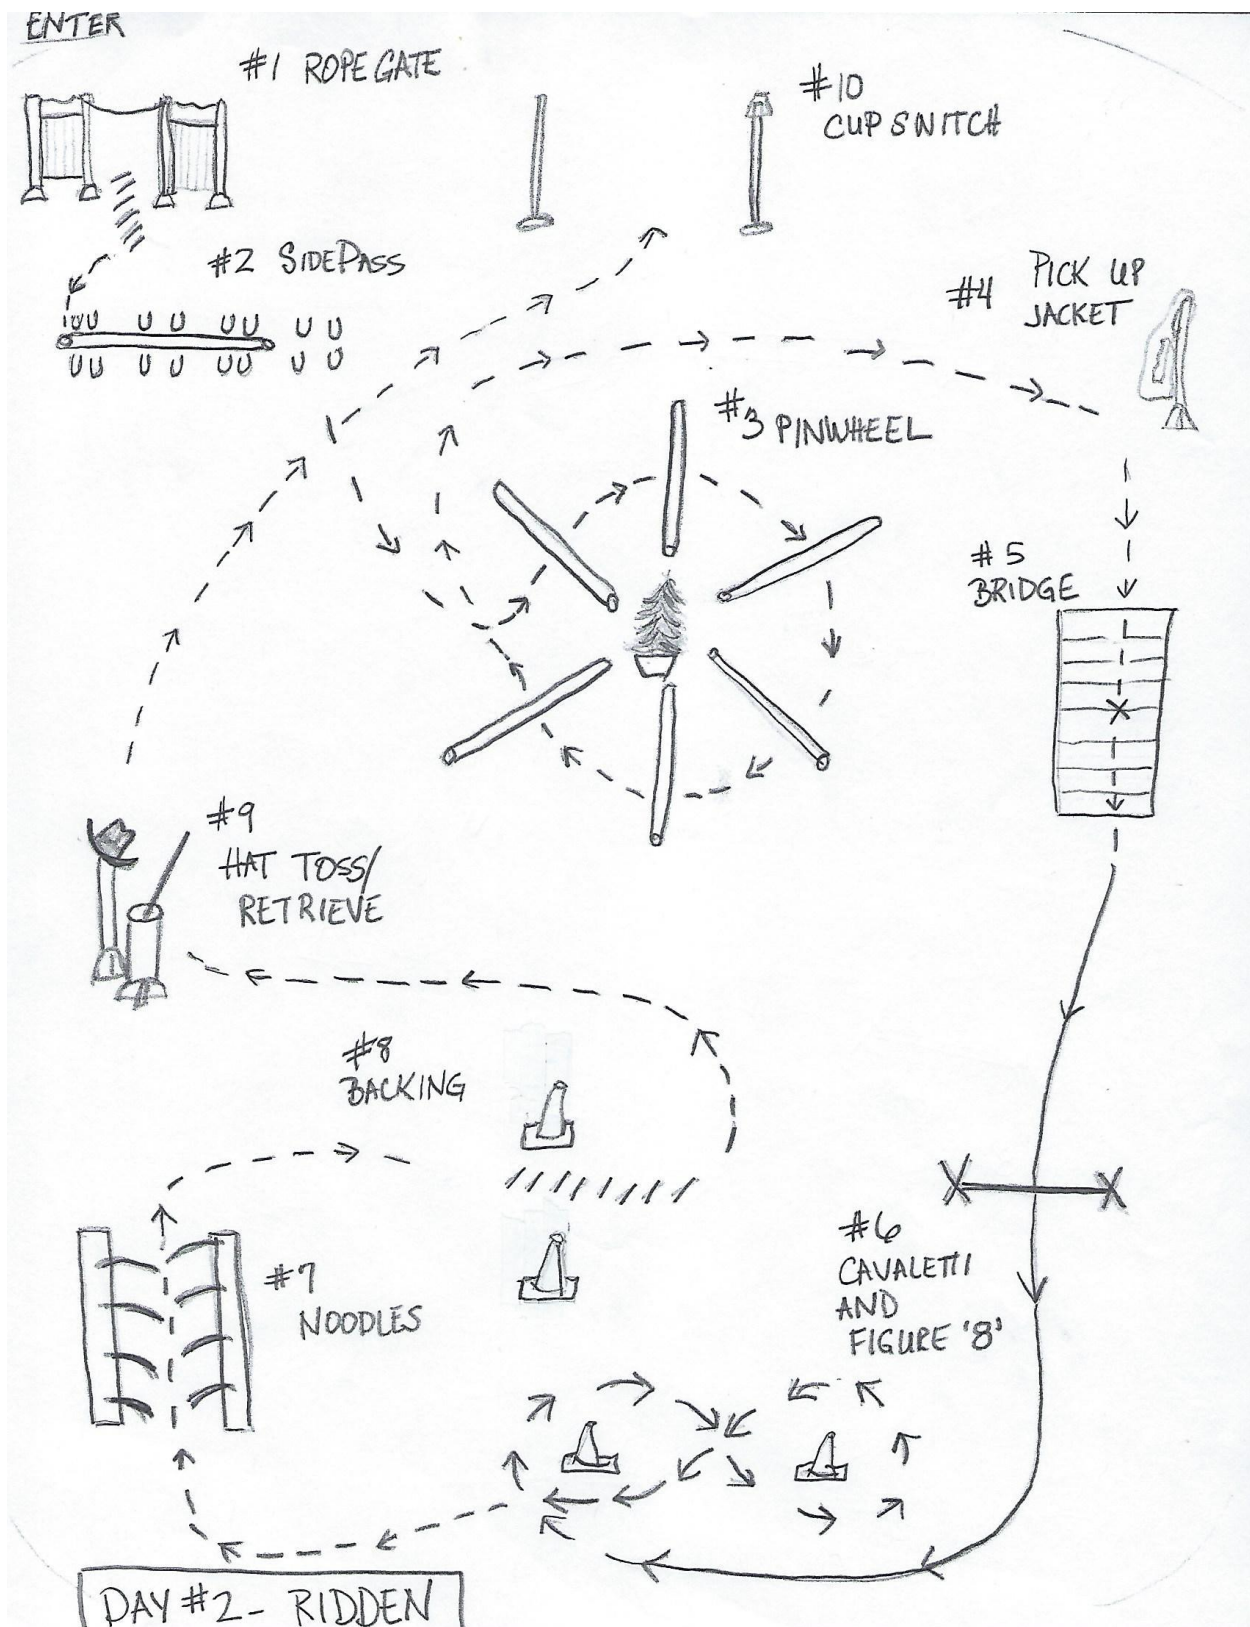 ENTER
#1 ROPE GATE
#10
CUP SWITCH
#2 SIDEPASS
#4 PICK UP
JACKET
#3 PINWHEEL
#5
BRIDGE
#9
HAT TOSS/
RETRIEVE
#8
BACKING
#7
NOODLES
#6
CAVALETTI
AND
FIGURE '8'
DAY #2- RIDDEN